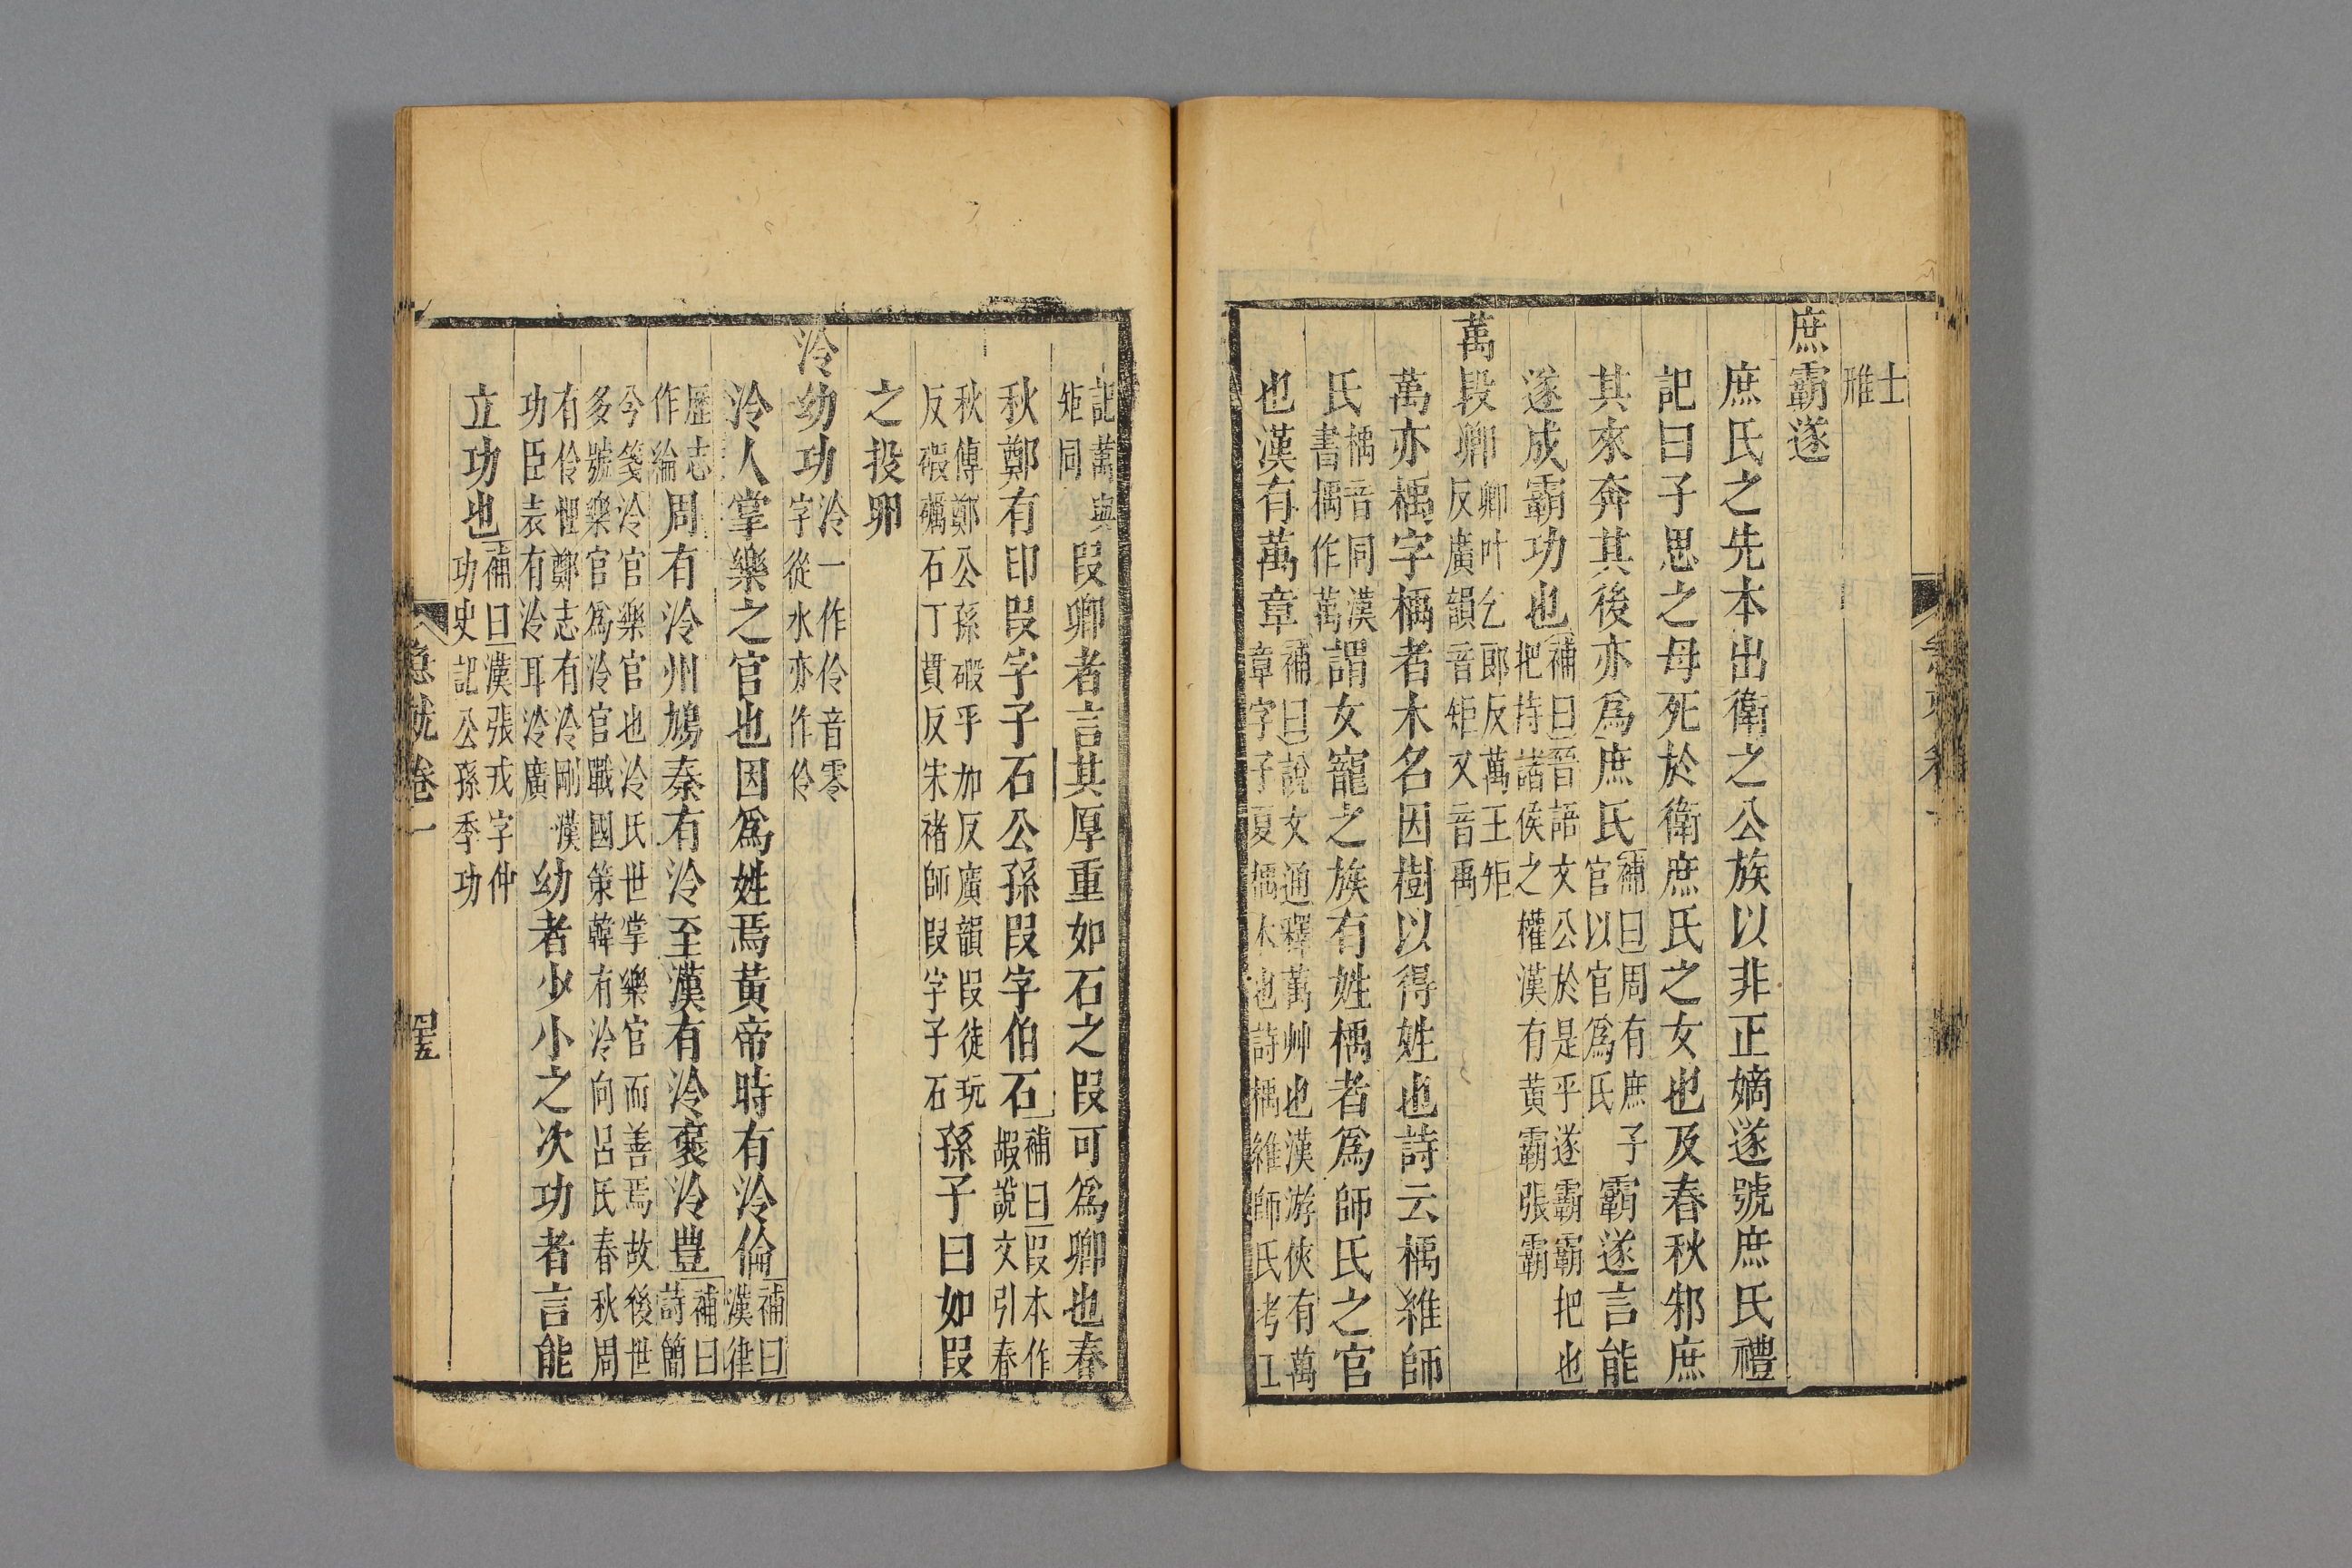 士
雅
庶霸遂
庶氏之先本出衛之公族以非正嫡遂號庶氏禮
記曰子思之母死於衛庶氏之女也及春秋邾庶
其來奔其後亦爲庶氏補曰周有庶子官以官爲氏霸遂言能
遂成霸功也補曰晉語文公於是乎遂霸霸把也把持諸侯之權漢有黃霸張霸
萬段卿卿叶乞郎反萬王矩反廣韻音矩又音禹
萬亦楀字楀者木名因樹以得姓也詩云楀維師
氏楀音同漢書楀作萬謂女寵之族有姓楀者爲師氏之官
也漢有萬章補曰說文通釋萬艸也漢游俠有萬章字子夏楀木也詩楀維師氏考工
記萬與矩同段卿者言其厚重如石之段可爲卿也春
秋鄭有印段字子石公孫段字伯石補曰段本作碬說文引春
秋傳鄭公孫碬乎加反廣韻段徒玩反碬礪石丁貫反宋褚師段字子石孫子曰如段
之投卵
泠幼功泠一作伶音零字從水亦作伶
泠人掌樂之官也因爲姓焉黃帝時有泠倫補曰漢律
歷志作綸周有泠州鳩秦有泠至漢有泠褒泠豊補曰詩簡
今箋泠官樂官也泠氏世掌樂官而善焉故後世多號樂官爲泠官戰國策韓有泠向呂氏春秋周
有伶悝鄭志有泠剛漢功臣表有泠耳泠廣幼者少小之次功者言能
立功也補曰漢張戎字仲功史記公孫季功
急就卷一